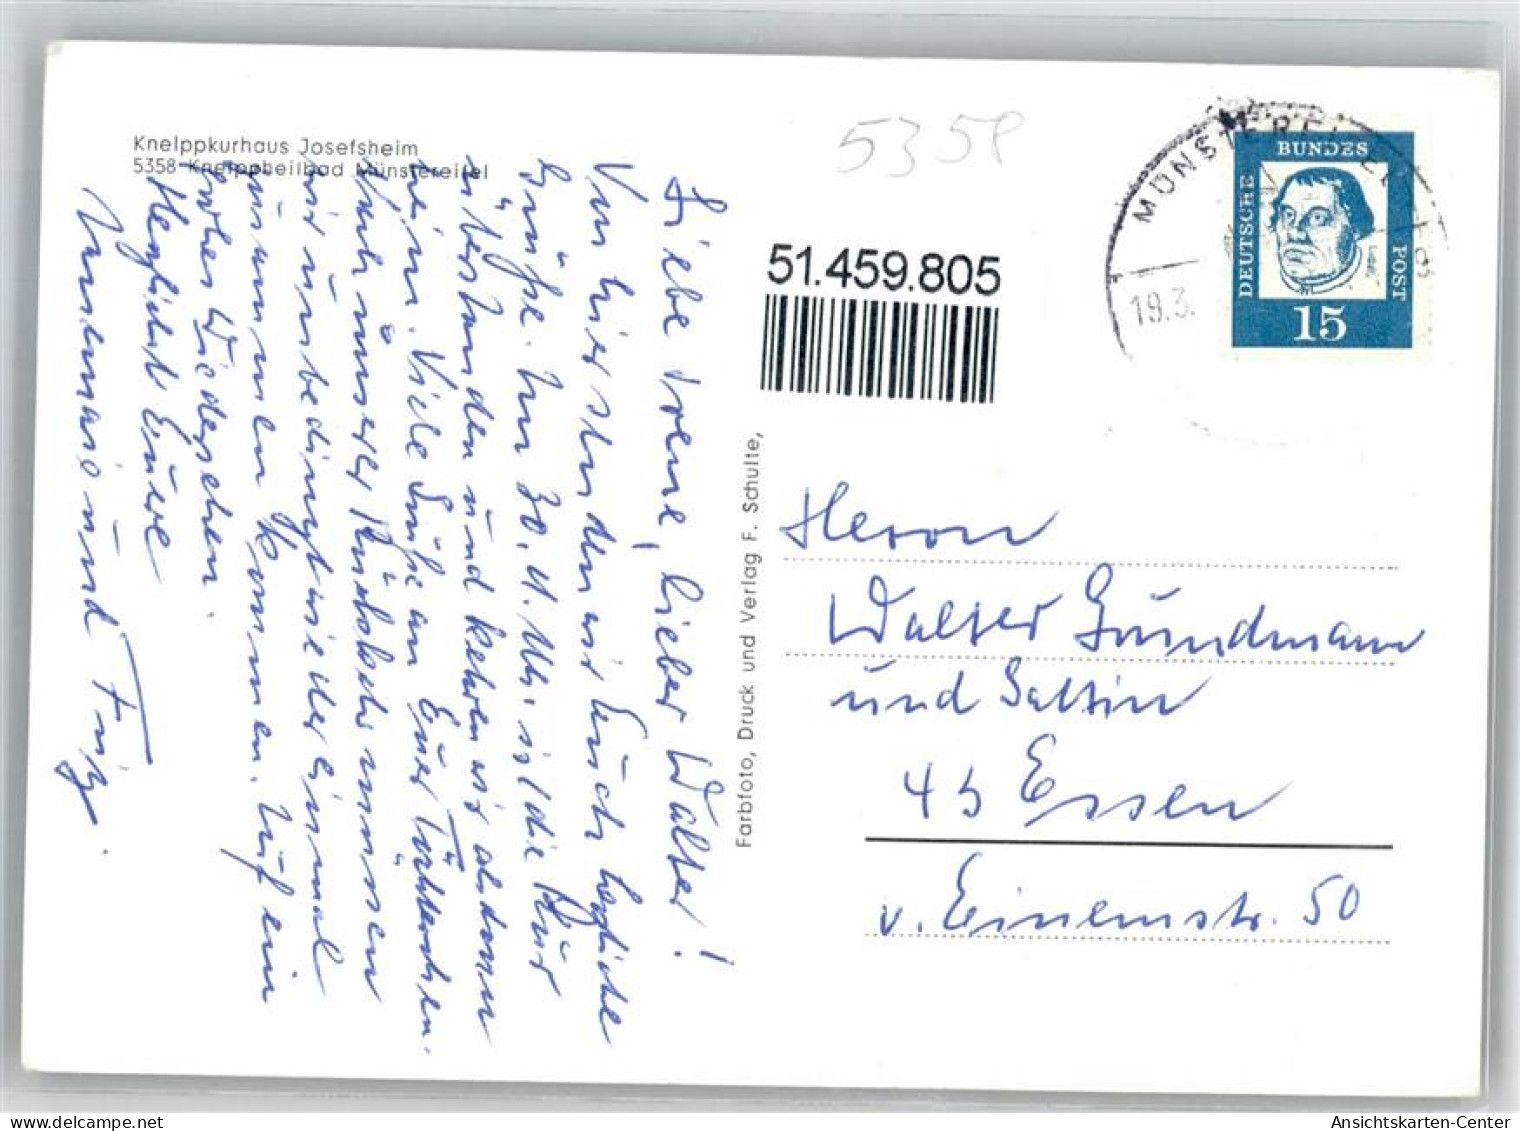 Kneippkurhaus Josefsheim
5358 Kneippheilbad Münstereifel
5358
MÜNSTEREIFEL
19.3.
DEUTSCHE
BUNDES
POST
15
51.459.805
Liebe Irene, lieber Walter!
Von hier senden wir Euch herzliche
Grüße. Am 30. d. Mts. ist die Kur
überstanden und kehren wir alsdann
heim. Viele Grüße an Euer Töchterchen.
Nach unserer Rückkehr müssen
wir unbedingt wieder einmal
zusammen kommen. Auf ein
frohes Wiedersehen.
Herzlichst Eure
Annemarie und Fritz.
Farbfoto, Druck und Verlag F. Schulte,
Herrn
Walter Grundmann
und Gattin
43 Essen
v. Einemstr. 50
Ansichtskarten-Center